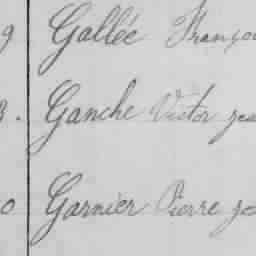 9 Gallée Franço
3. Ganche Victor jea
0 Garnier Pierre jo